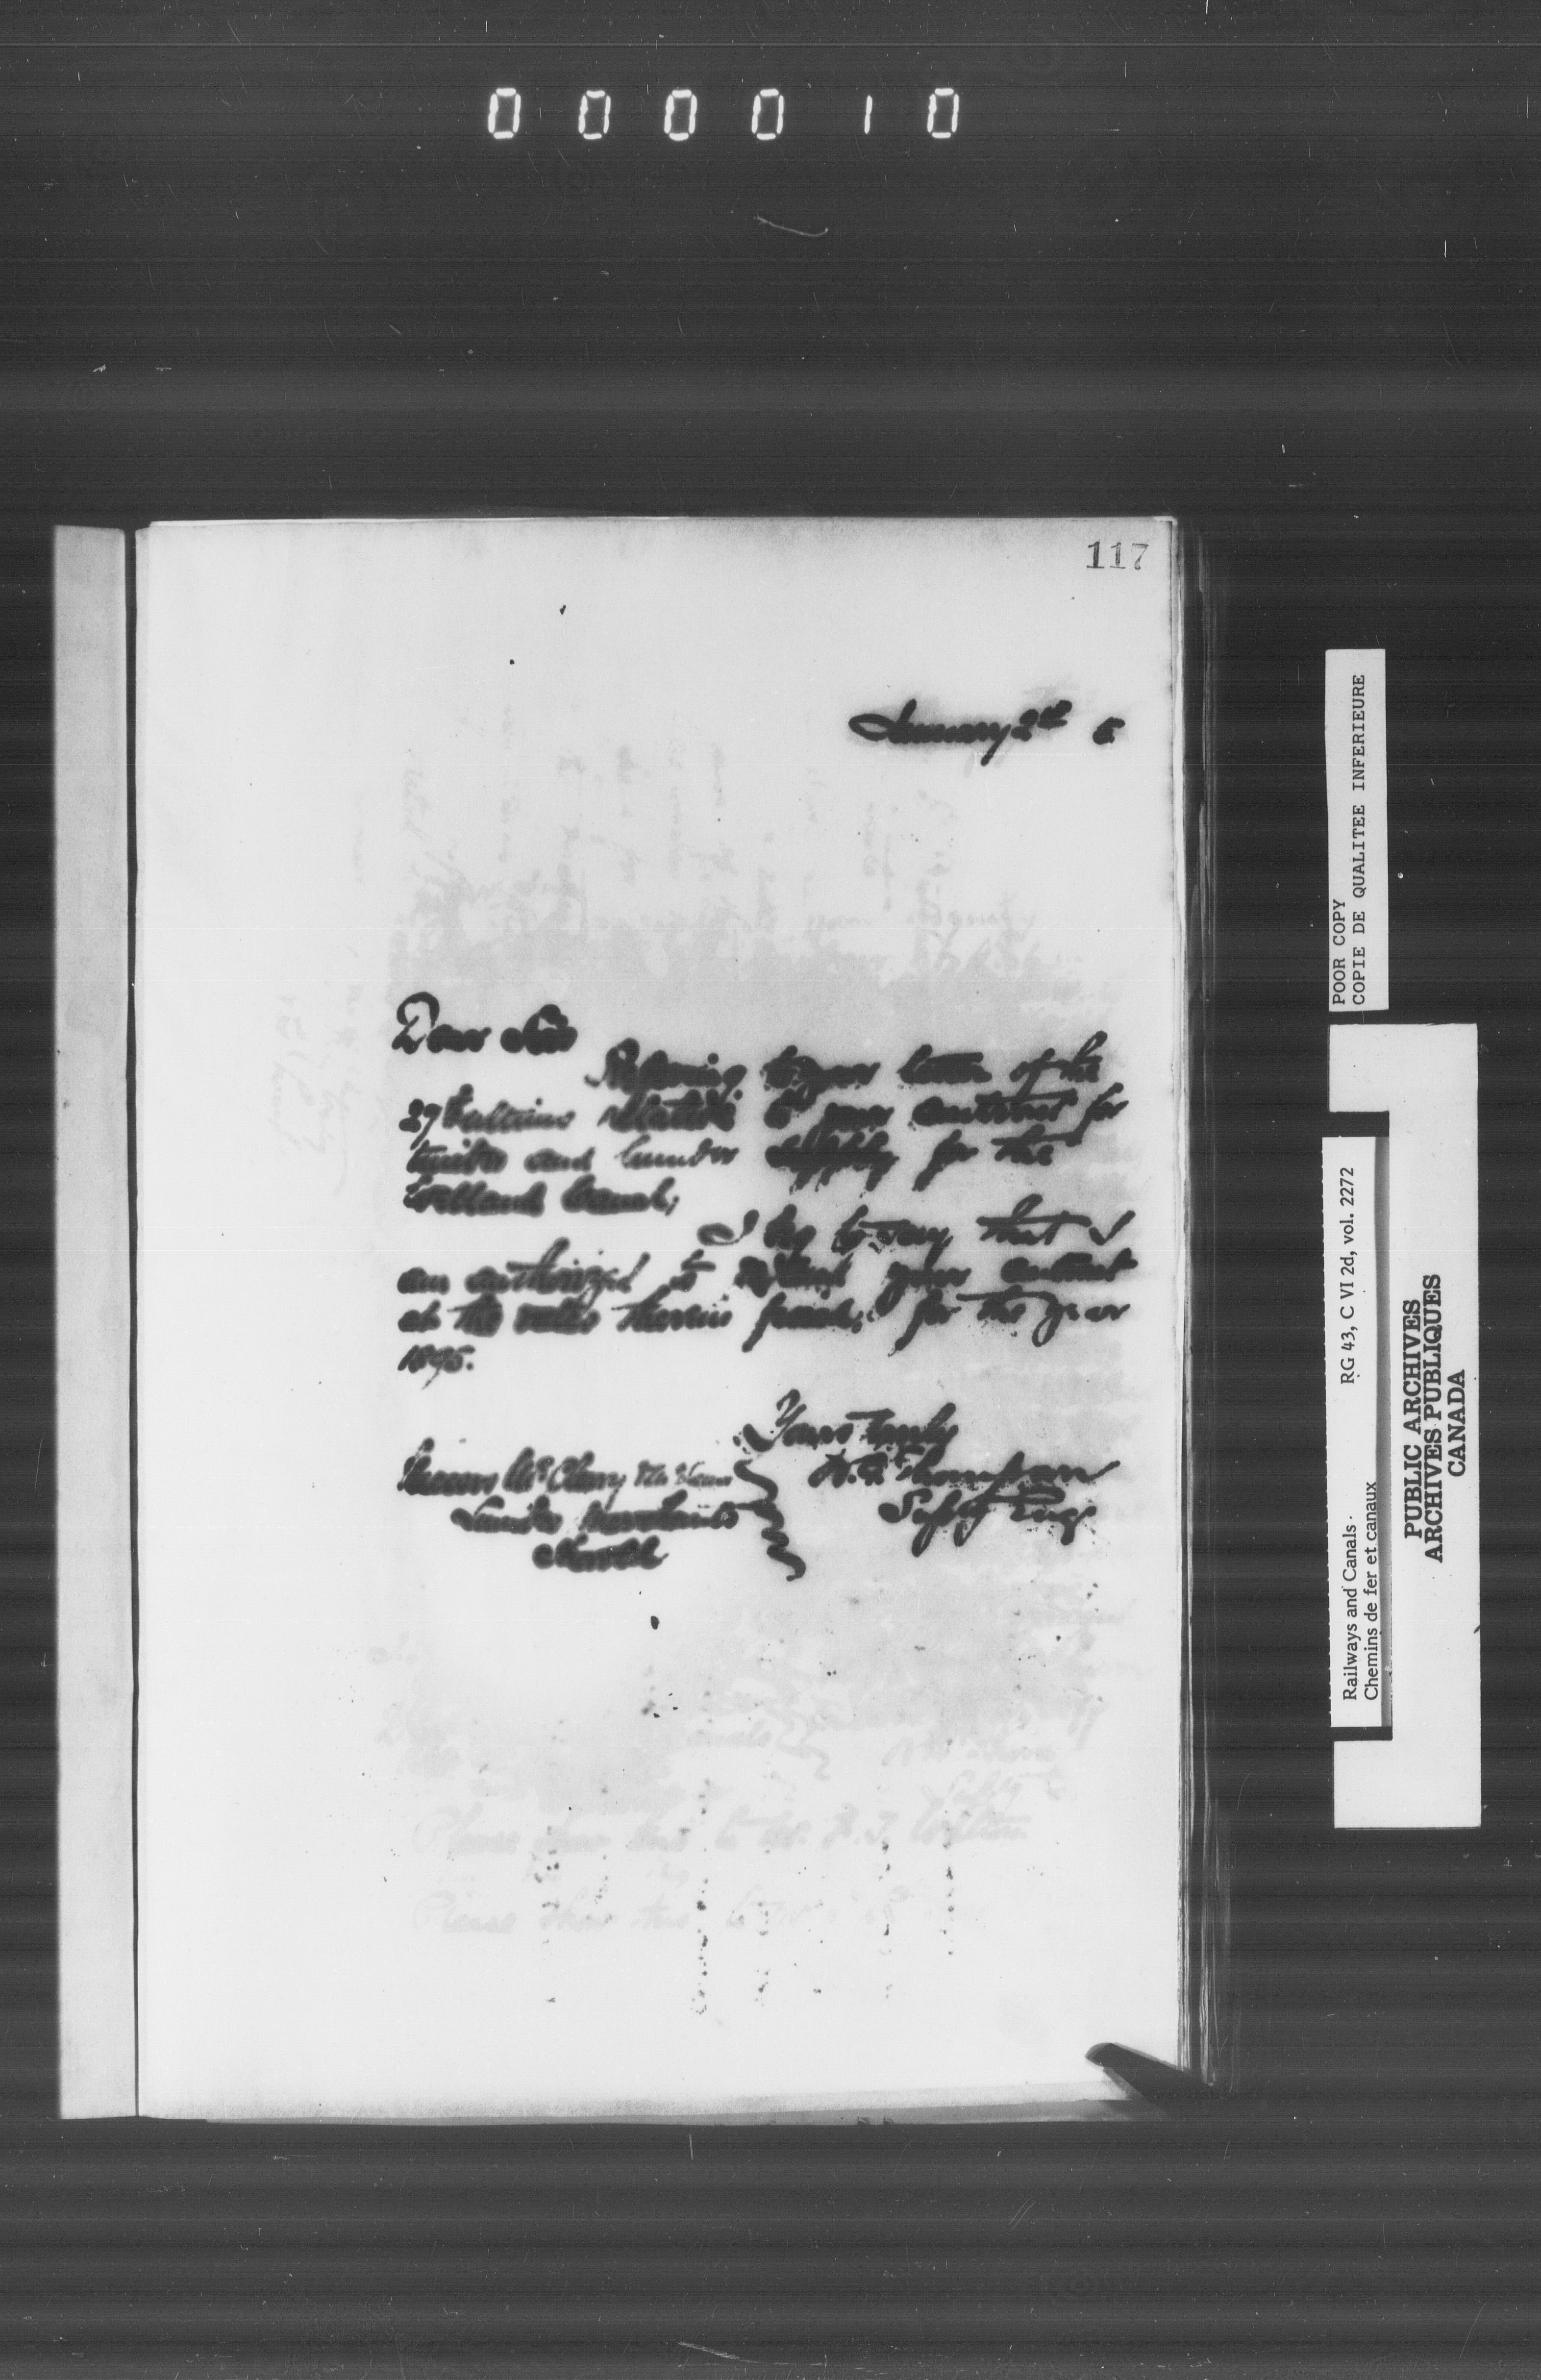 000010
117
January 2nd 5
Dear Sirs
Referring to your letter of the
27th ultimo relative to your contract for
timber and lumber supply for the
Welland Canal,
I beg to say that I
am authorized to extend your contract
at the rates therein for the year
1895.
Yours truly
W.G. Thompson
Supty Engr
Messrs McCleary & McLean
Lumber Merchants
Thorold
Please show this to Mr.
Please show this to
POOR COPY
COPIE DE QUALITEE INFERIEURE
Railways and Canals RG 43, C VI 2d, vol. 2272
Chemins de fer et canaux
PUBLIC ARCHIVES
ARCHIVES PUBLIQUES
CANADA